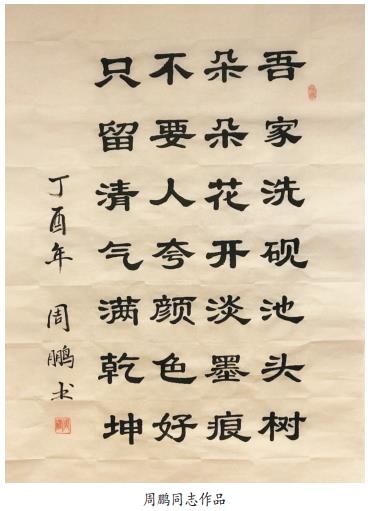 吾家洗砚池头树
朵朵花开淡墨痕
不要人夸颜色好
只留清气满乾坤
丁酉年 周鹏书
周鹏同志作品